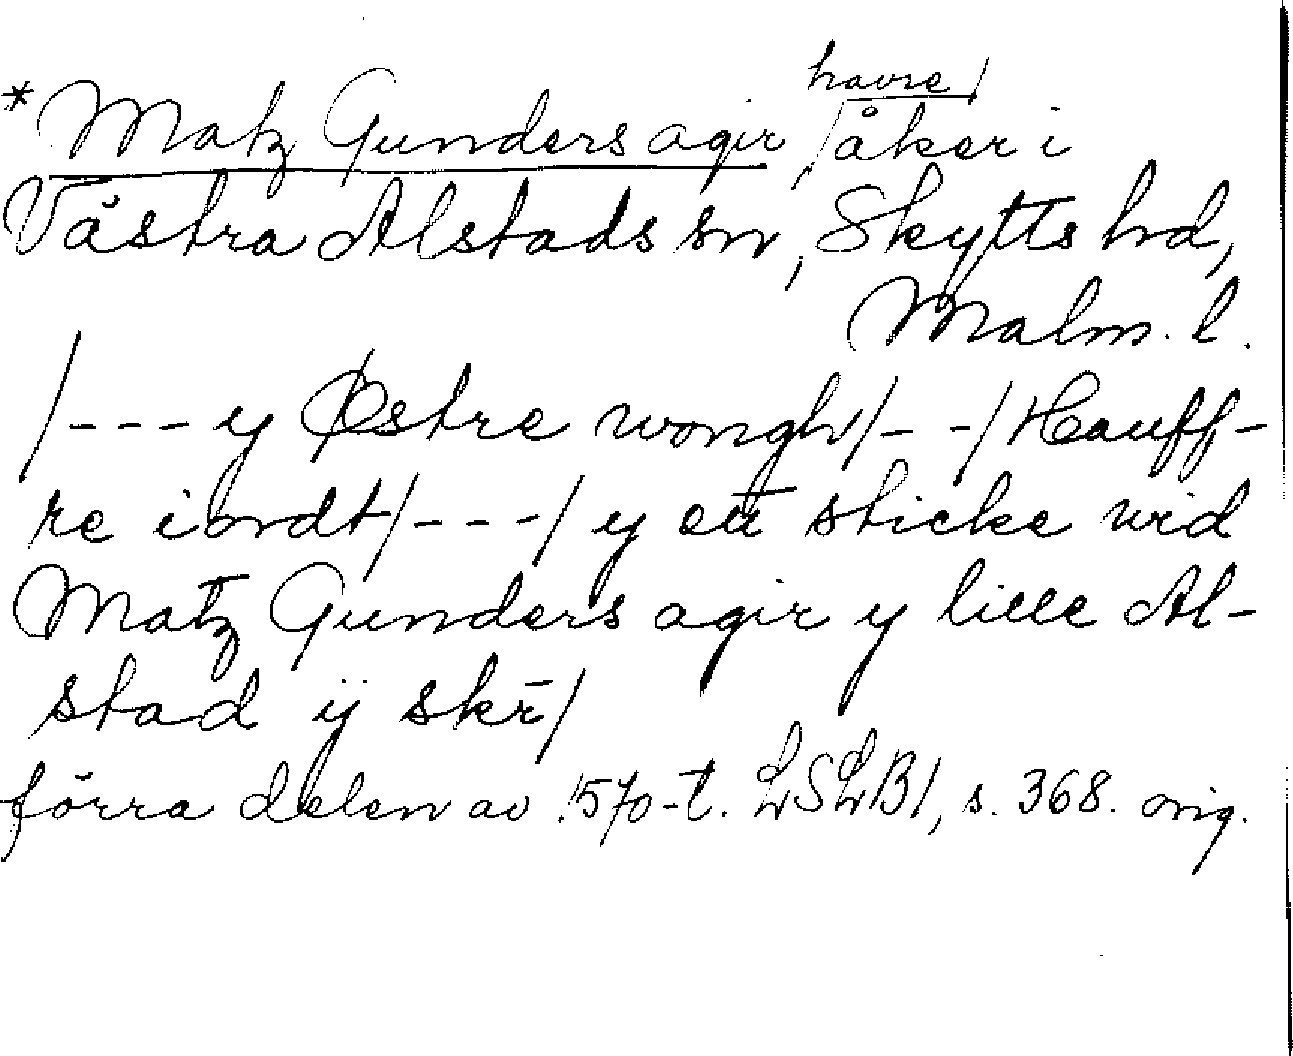 *Matz Gunders agir, /havre/ åker i
Västra Alstads sn, Skytts hd,
Malm. l.
/--- y Østre wongh/- -/ Hauff-
re iordt/---/ y ett sticke wid
Matz Gunders agir y lille Al-
stad ij skr̄/
förra delen av 1570-t. LSLB1, s. 368. orig.